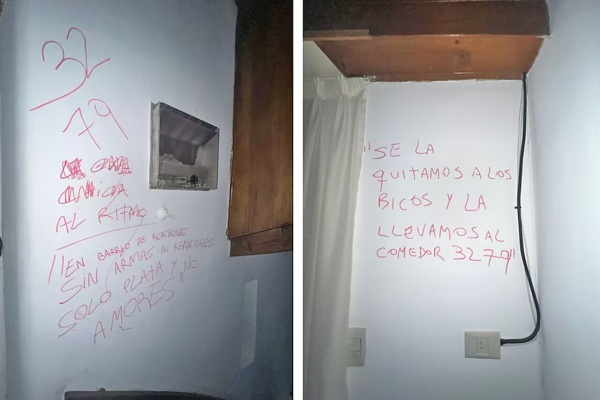 32
79
AL RITMO
"EN BARRIO DE RICACHONES
SIN ARMAS NI RENCORES
SOLO PLATA Y NO
AMORES"
"SE LA
QUITAMOS A LOS
RICOS Y LA
LLEVAMOS AL
COMEDOR 3279"